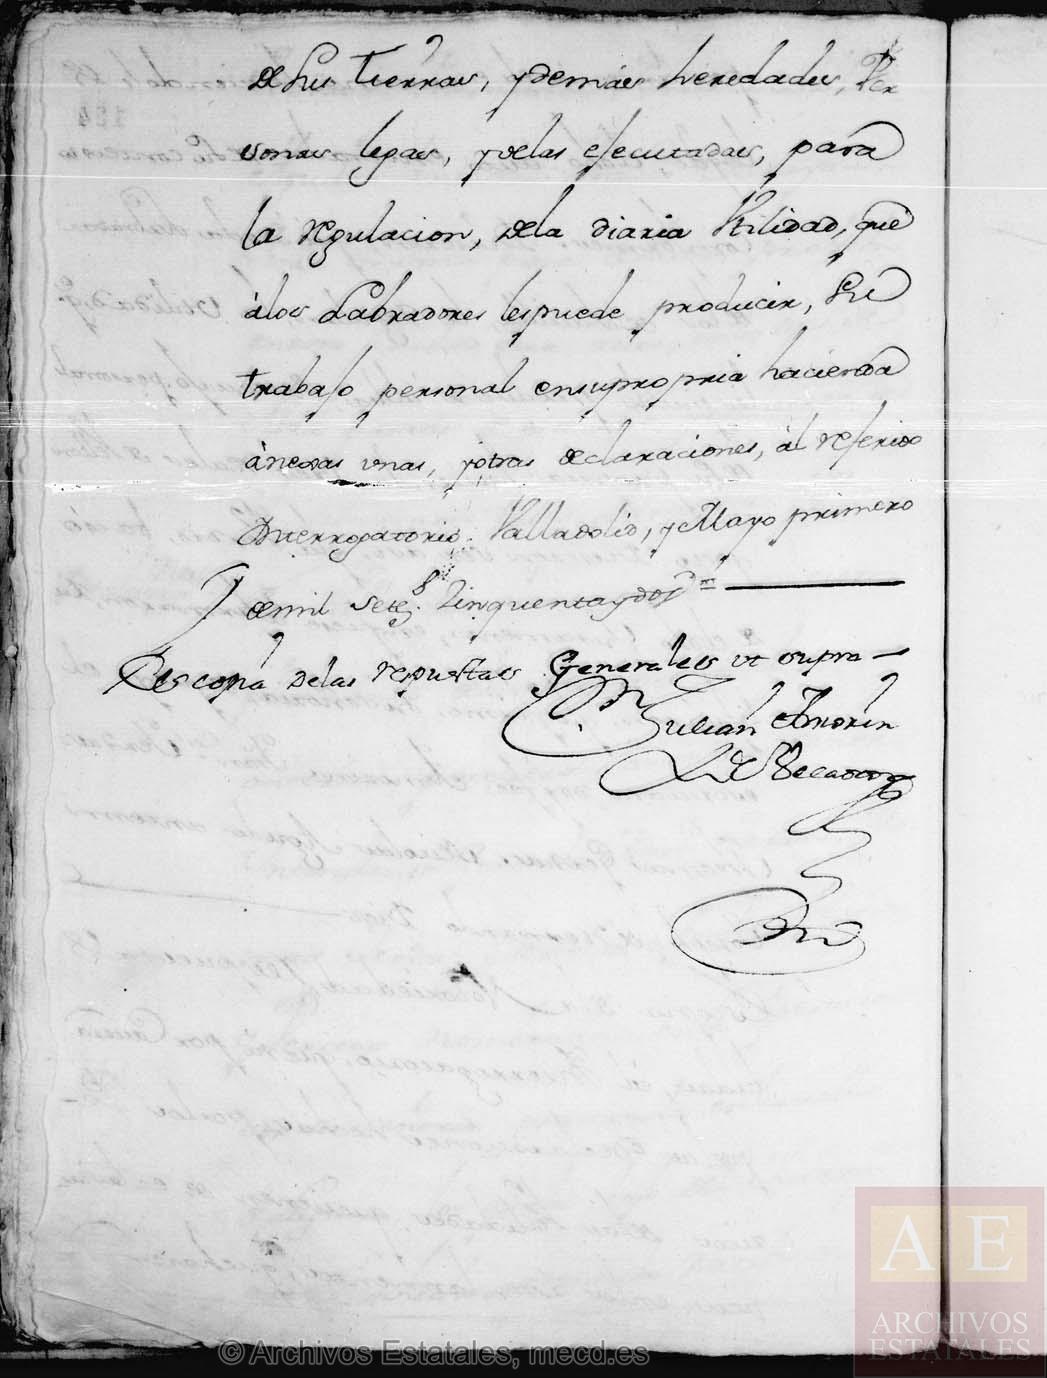 de sus tierras, y demas heredades, Per
sonas legas, y delas efecutadas, para
la regulacion, dela diaria Vtilidad, que
àlos Labradores lespuede producir, su
trabajo personal ensupropria hacienda
ànexas unas, yotras declaraciones, àl referido
Ynterrogatorio. Valladolid, y Mayo primero
demil Setez.s Zinquentaydos
Es copia delas repuestas Generales ut supra
Julian Amorin
de Velasco
© Archivos Estatales, mecd.es
AE
ARCHIVOS
ESTATALES